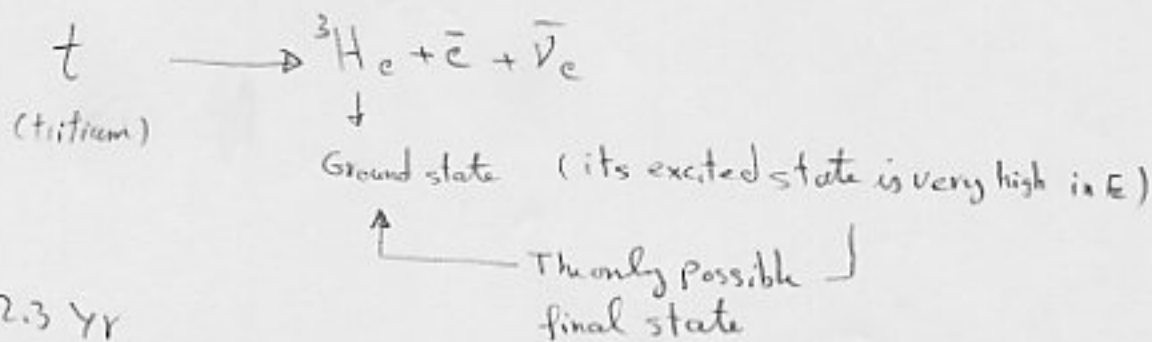 t → ³He + ē + ν̄e
(tritium)
Ground state (its excited state is very high in E)
The only possible
final state
2.3 yr